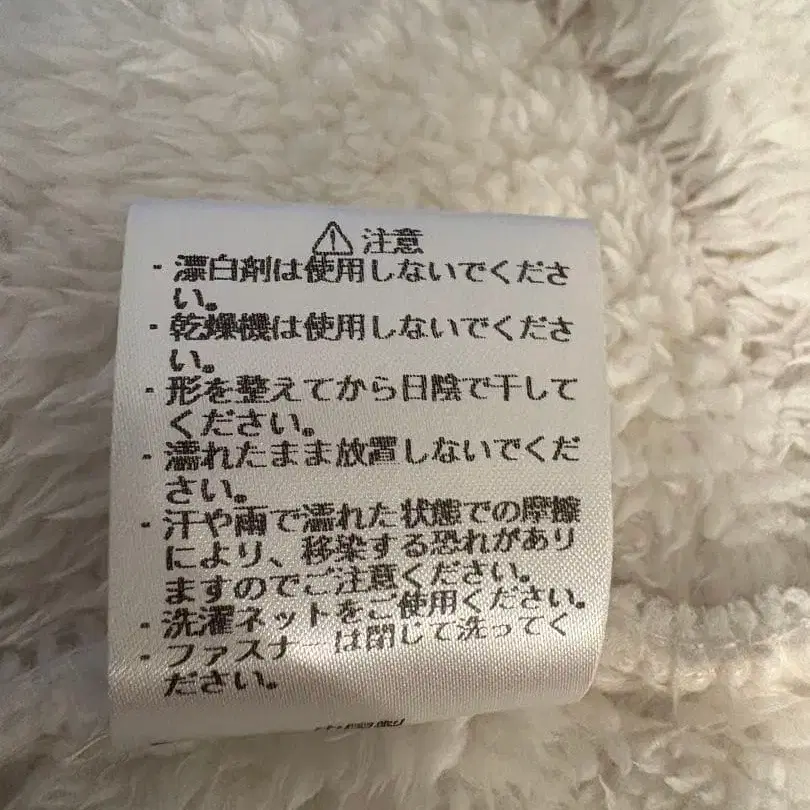 ⚠ 注意
・漂白剤は使用しないでくださ
い。
・乾燥機は使用しないでくださ
い。
・形を整えてから日陰で干して
ください。
・濡れたまま放置しないでくだ
さい。
・汗や雨で濡れた状態での摩擦
により、移染する恐れがあり
ますのでご注意ください。
・洗濯ネットをご使用ください。
・ファスナーは閉じて洗ってく
ださい。